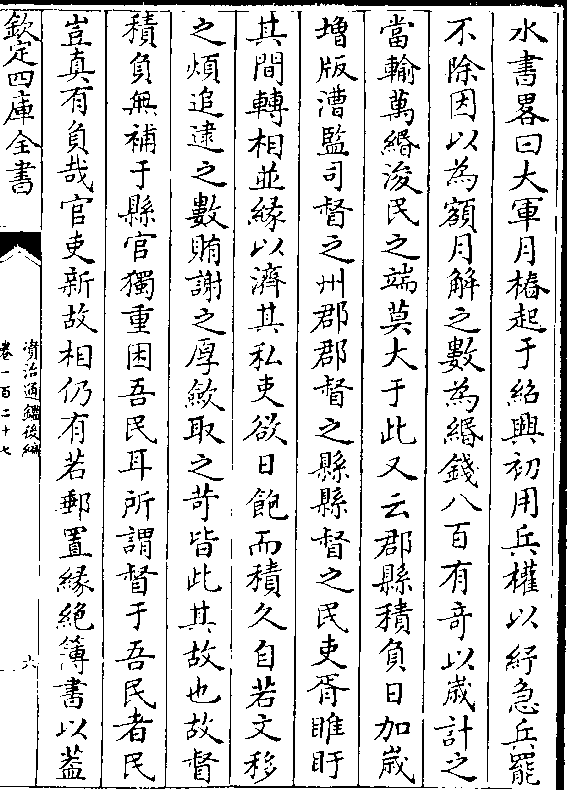 水書畧曰大軍月樁起于紹興初用兵權以紓急兵罷
不除因以為額月解之數為緡錢八百有奇以嵗計之
當輸萬緡浚民之端莫大于此又云郡縣積負日加嵗
增版漕監司督之州郡郡督之縣縣督之民吏胥睢盱
其間轉相並緣以濟其私吏欲日飽而積久自若文移
之煩追逮之數賄謝之厚歛取之苛皆此其故也故督
積負無補于縣官獨重困吾民耳所謂督于吾民者民
豈真有負哉官吏新故相仍有若郵置緣絶簿書以葢
欽定四庫全書
資治通鑑後編
卷一百二十七
六